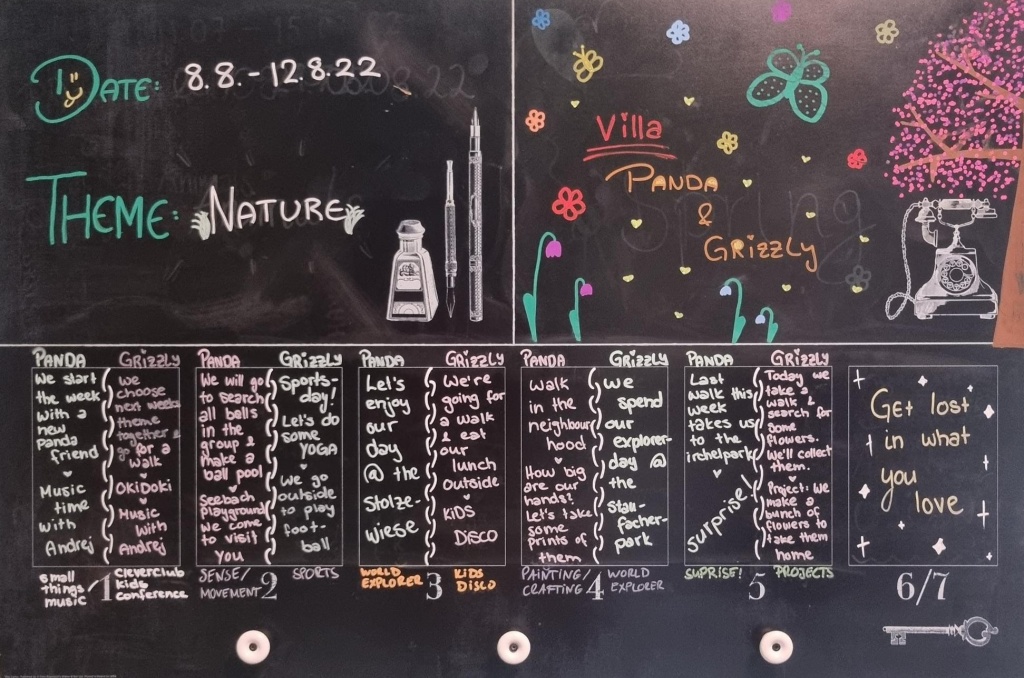 DATE: 8.8.-12.8.22
THEME: NATURE
Villa
PANDA
&
GRIZZLY
PANDA
We start
the week
with a
new
panda
friend
Music
time
with
Andrej
small
things
music
GRIZZLY
we
choose
next weeks
theme
together &
go for a
walk
OKiDoki
Music
with
Andrej
Cleverclub
kids
conference
1
PANDA
We will go
to search
all bells
in the
group &
make a
ball pool
Seebach
playground
we come
to visit
you
SENSE/
MOVEMENT
GRIZZLY
Sports-
day!
Let's do
some
YOGA
we go
outside
to play
foot-
ball
SPORTS
2
PANDA
Let's
enjoy
our
day
@ the
Stolze-
wiese
WORLD
EXPLORER
GRIZZLY
We're
going for
a walk
& eat
our
lunch
outside
KiDS
DISCO
KIDS
DISCO
3
PANDA
walk
in the
neighbour
hood
How big
are our
hands?
Let's take
some
prints of
them
PAINTING/
CRAFTING
GRIZZLY
we
spend
our
explorer-
day @
the
Stau-
facher-
park
WORLD
EXPLORER
4
PANDA
Last
walk this
week
takes us
to the
irchelpark
surprise!
SUPRISE!
GRIZZLY
Today we
take a
walk &
search for
some
flowers.
We'll collect
them.
Project: We
make a
bunch of
flowers to
take them
home
PROJECTS
5
Get lost
in what
you
love
6/7